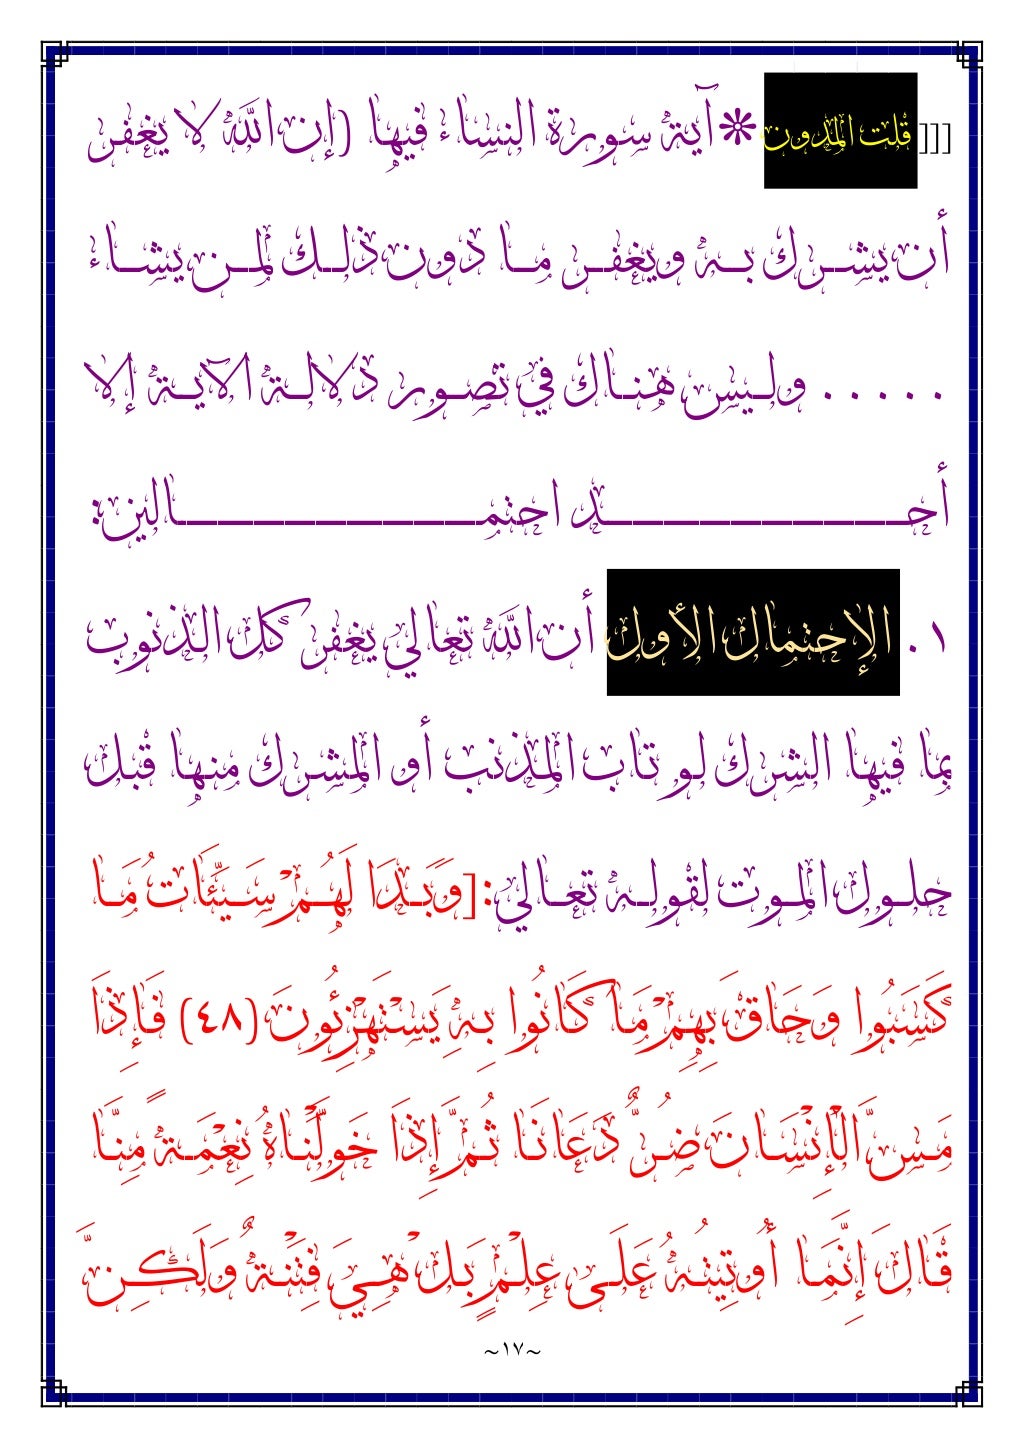 [[[ قلت المدون * آية سورة النساء فيها (إن الله لا يغفر
أن يشرك به ويغفر ما دون ذلك لمن يشاء
. . . . . وليس هناك في تصور دلالة الآية إلا
أحد احتمالين:
١. الإحتمال الأول أن الله تعالي يغفر كل الذنوب
بما فيها الشرك لو تاب المذنب أو المشرك منها قبل
حلول الموت لقوله تعالي:[وَبَدَا لَهُمْ سَيِّئَاتُ مَا
كَسَبُوا وَحَاقَ بِهِمْ مَا كَانُوا بِهِ يَسْتَهْزِئُونَ (٤٨) فَإِذَا
مَسَّ الْإِنْسَانَ ضُرٌّ دَعَانَا ثُمَّ إِذَا خَوَّلْنَاهُ نِعْمَةً مِنَّا
قَالَ إِنَّمَا أُوتِيتُهُ عَلَى عِلْمٍ بَلْ هِيَ فِتْنَةٌ وَلَكِنَّ
~١٧~